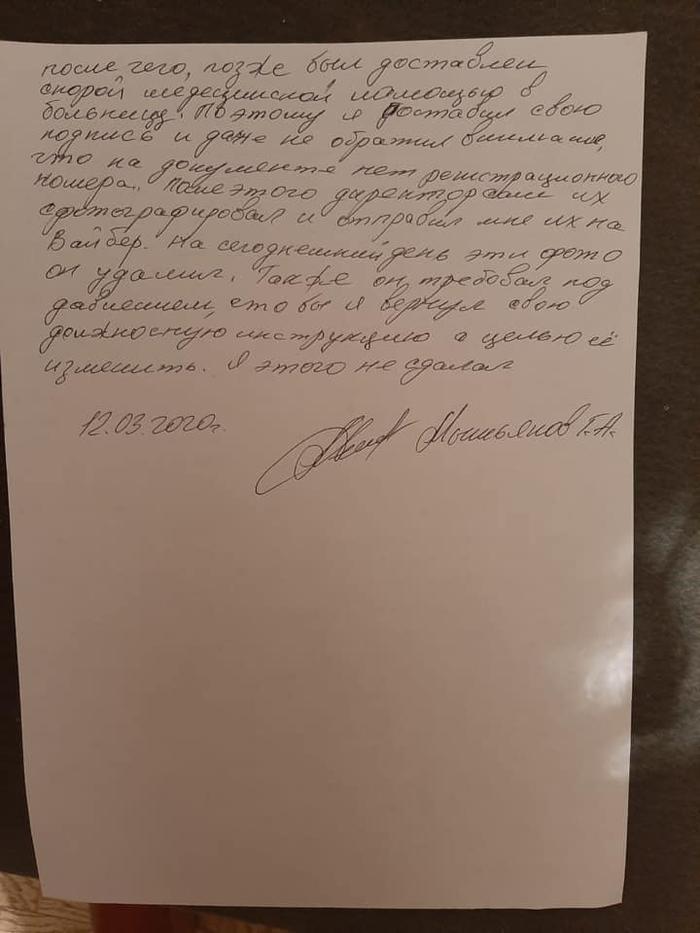 после чего, позже был доставлен
скорой медецинской помощью в
больницу. Поэтому я поставил свою
подпись и даже не обратил внимание,
что на документе нет регистрационного
номера. После этого директор сам их
сфотографировал и отправил мне их на
Вайбер. На сегоднешний день эти фото
он удалил. Также он требовал под
давлением, что бы я вернул свою
должностную инструкцию с целью её
изменить. Я этого не сделал
12.03.2020г. Мышьянов Г.А.